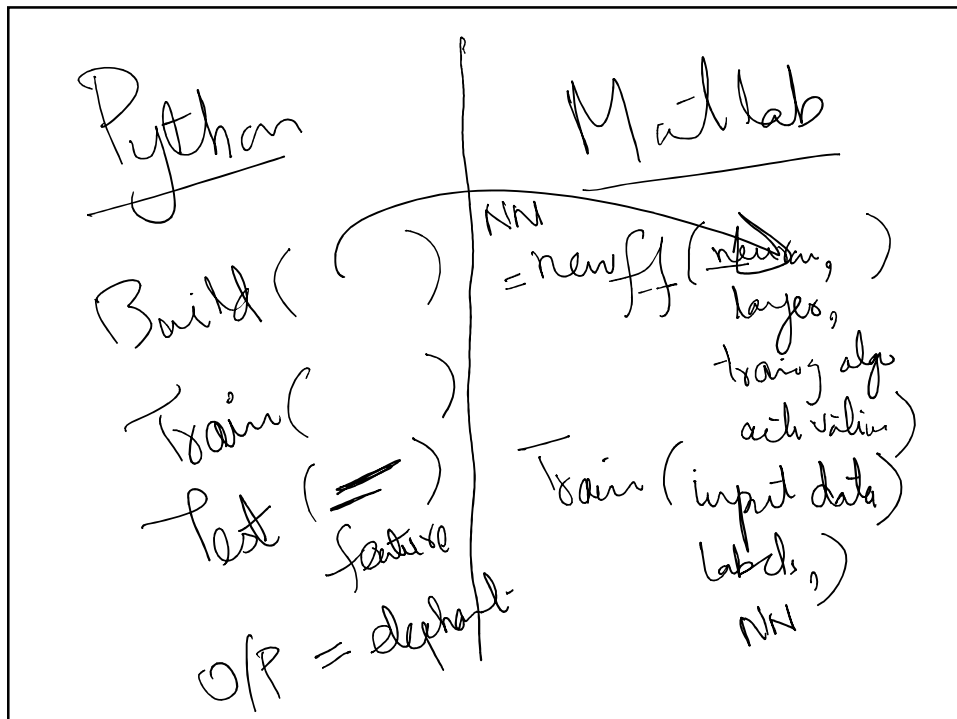 Python
Build ( )
Train ( )
Test ( = )
feature
O/P = elephant
Matlab
NN
= newff ( neuron, )
layer,
traing algo
activation)
Train ( input data )
labels, )
NN